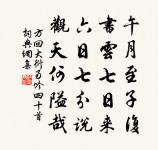 午月至子復
書雲七日來
六日七分說
觀天何隘哉
方回大衍易吟四十首
詞典網集